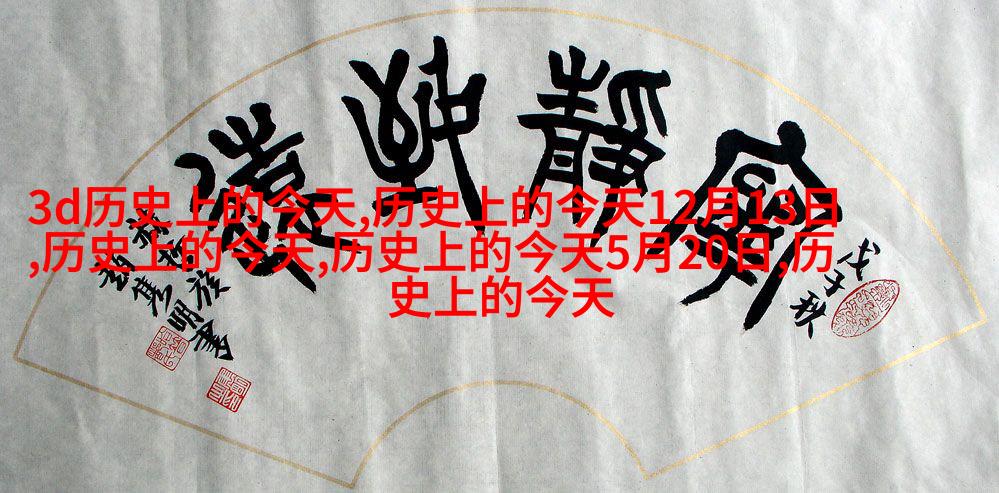 3d历史上的今天,历史上的今天12月13日
,历史上的今天,历史上的今天5月20日,历
史上的今天
寧靜致遠
戊子秋